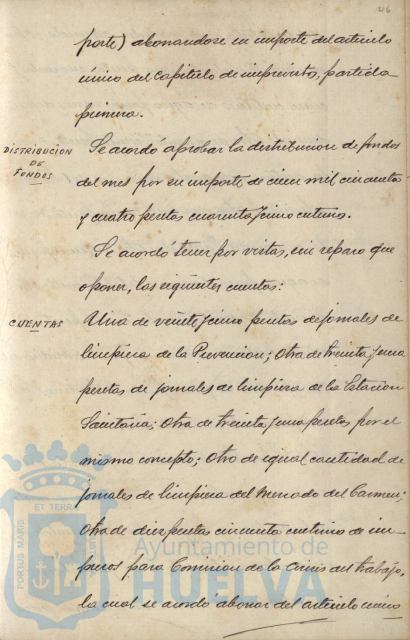 46
porte) abonandose su importe del artículo
único del Capítulo de imprevistos, partida
primera.
DISTRIBUCION
DE
FONDOS
Se acordó aprobar la distribucion de fondos
del mes por su importe de cien mil cincuenta
y cuatro pesetas cuarenta y cinco centimos.
Se acordó tener por vistas, sin reparo que
oponer, las siguientes cuentas:
CUENTAS
Una de veinte y cinco pesetas de jornales de
limpieza de la Prevencion; Otra de treinta y una
pesetas de jornales de limpieza de la Estacion
Sanitaria; Otra de treinta y una pesetas por el
mismo concepto; Otra de igual cantidad de
jornales de limpieza del Mercado del Carmen;
Otra de diez pesetas cincuenta centimos de im-
presos para Comision de la Crisis del trabajo,
la cual se acordó abonar del artículo cinco
PORTUS MARIS ET TERRAE
Ayuntamiento de
HUELVA